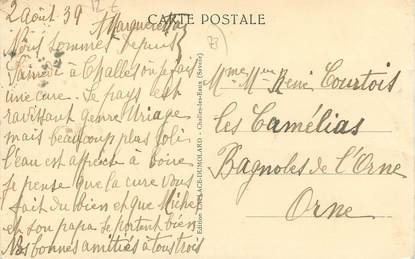 2 Août 39
CARTE POSTALE
Marguerite
Nous sommes depuis
Samedi à Challes où je fais
une cure. Le pays est
ravissant genre Uriage
mais beaucoup plus joli
l'eau est affreuse à boire
Je pense que la cure vous
fait du bien et que Miche
et son papa se portent bien
Nos bonnes amitiés à tous trois
Edition LAPLACE-DUMOLARD - Challes-les-Eaux (Savoie)
Mme Mr René Courtois
les Camélias
Bagnoles de l'Orne
Orne